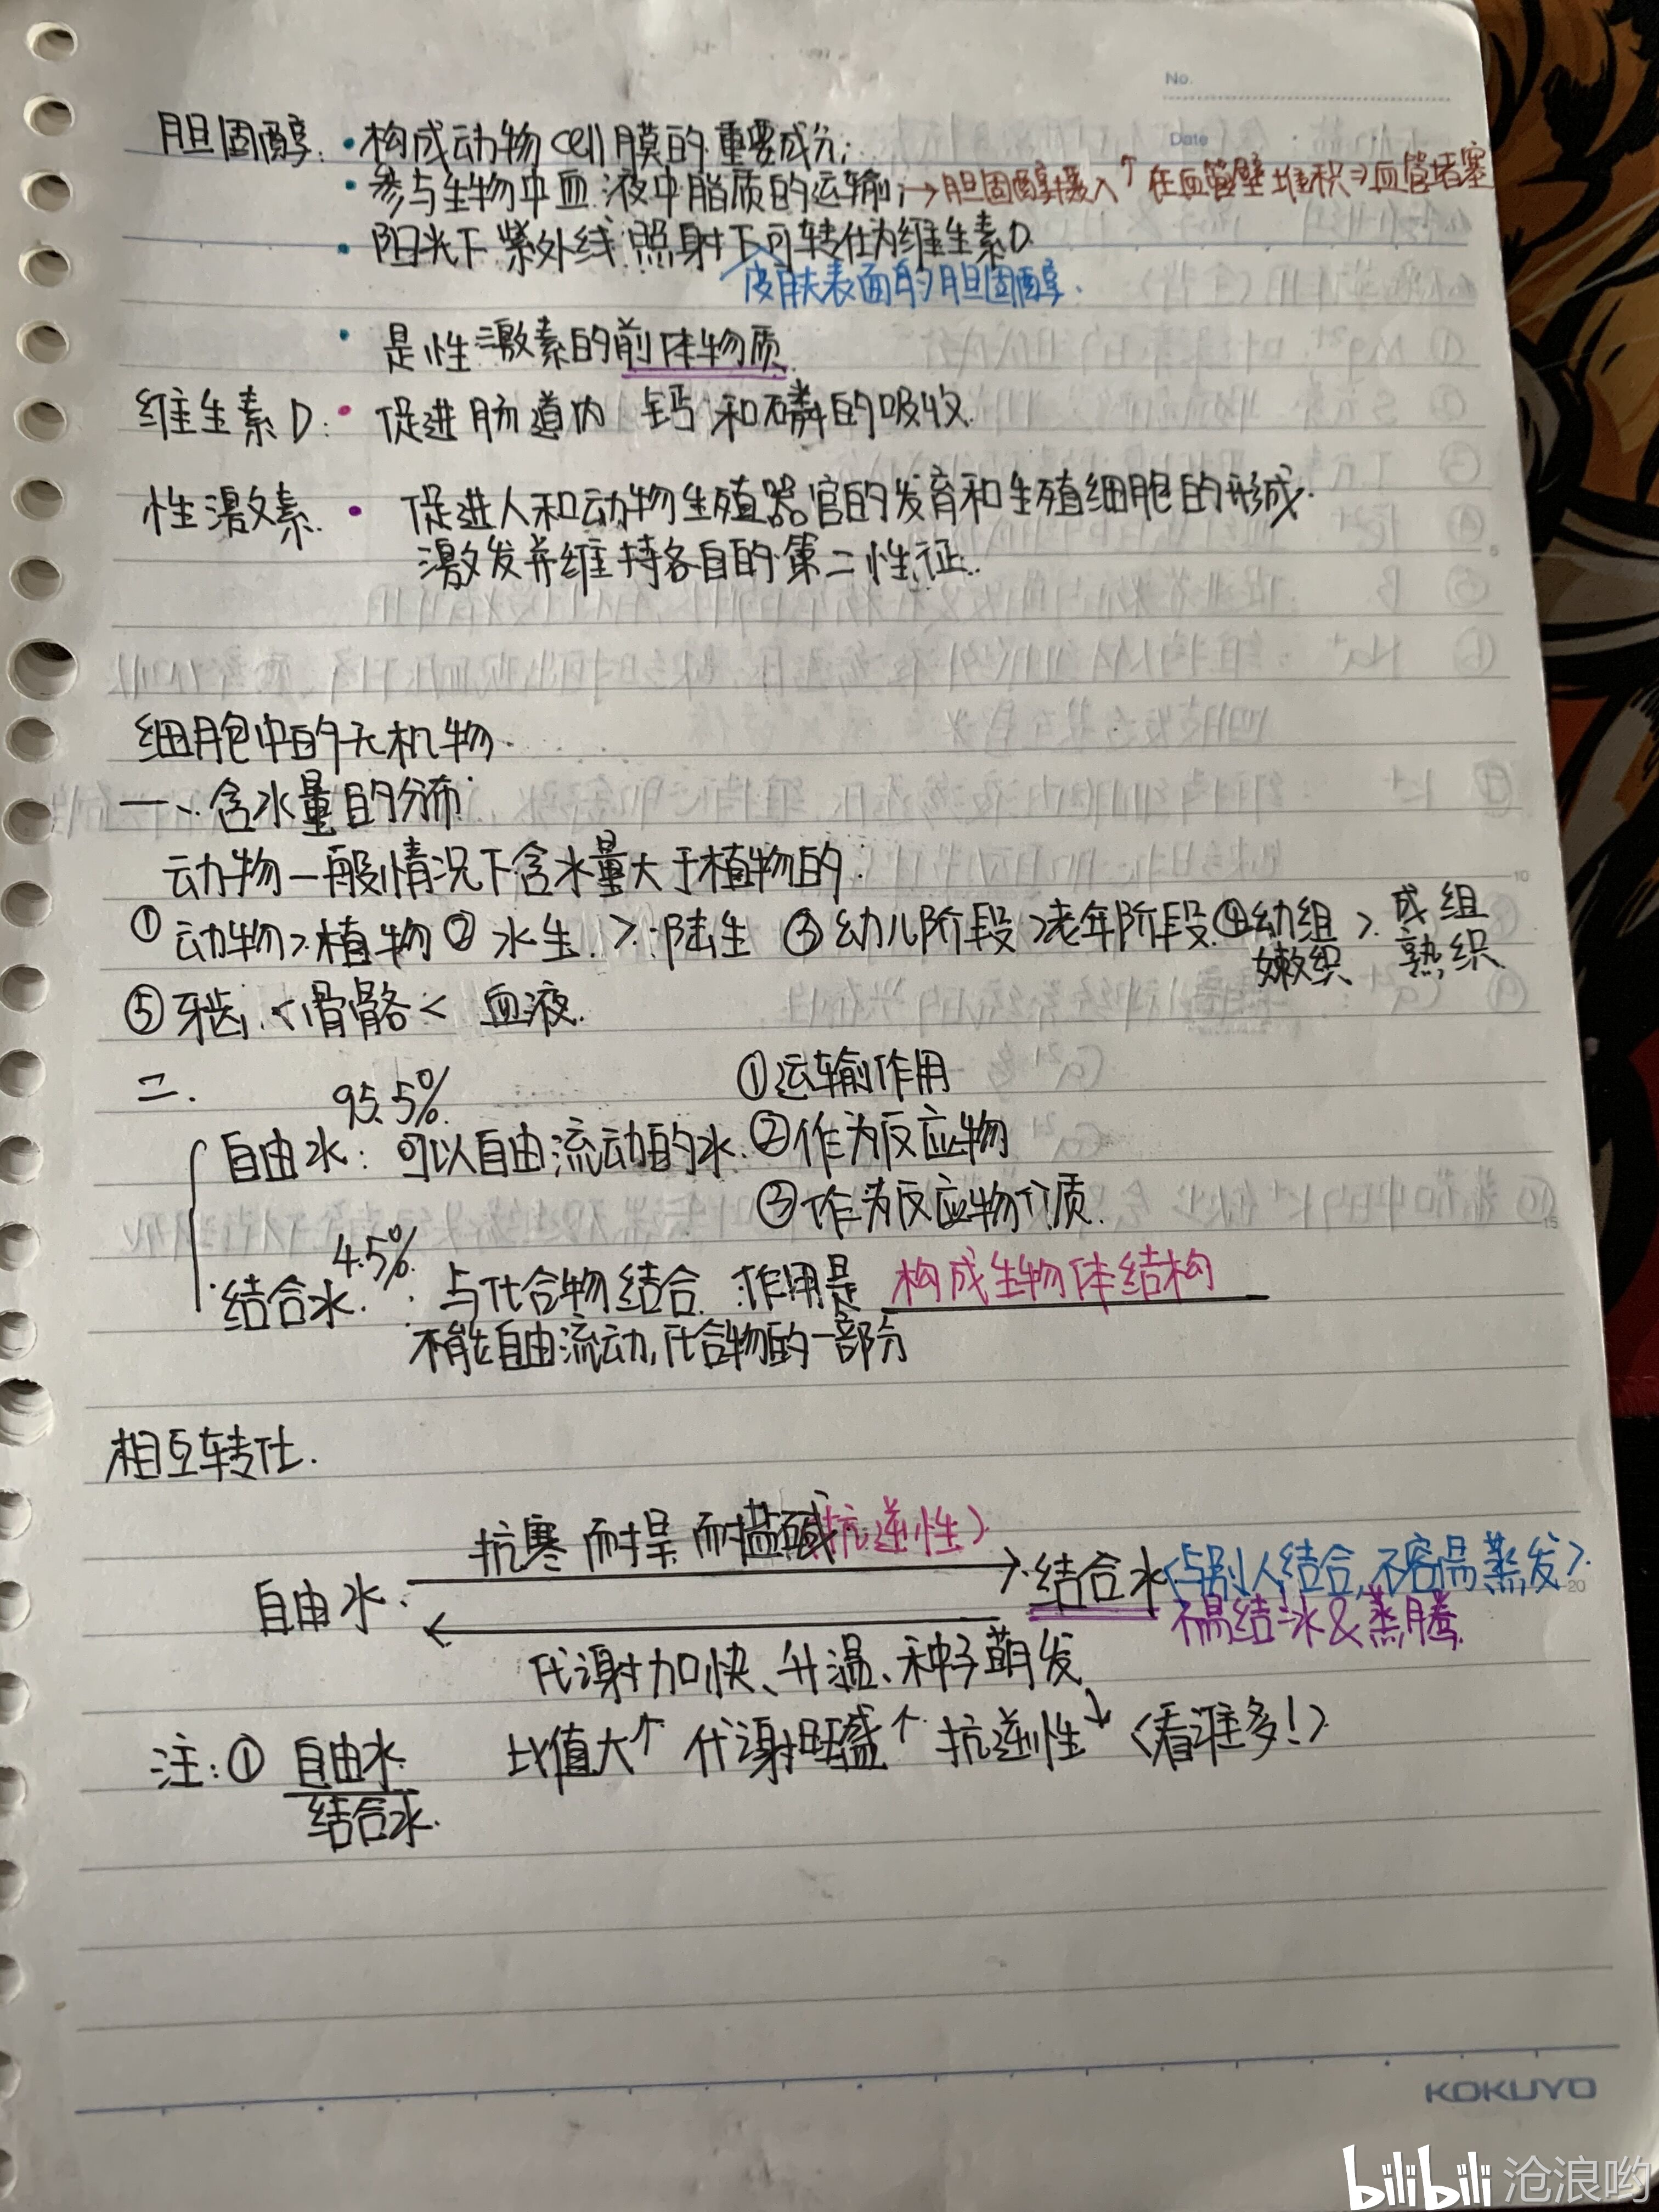 No.
Date
胆固醇: • 构成动物cell膜的重要成分;
• 参与生物中血液中脂质的运输; → 胆固醇摄入↑ 在血管壁堆积⇒血管堵塞
• 阳光下紫外线照射下可转化为维生素D.
皮肤表面的胆固醇.
• 是性激素的前体物质.
维生素D: • 促进肠道内 钙和磷的吸收.
性激素. • 促进人和动物生殖器官的发育和生殖细胞的形成.
激发并维持各自的第二性征.
细胞中的无机物.
一、含水量的分布
动物一般情况下含水量大于植物的.
① 动物>植物 ② 水生 > 陆生 ③ 幼儿阶段>老年阶段. ④ 幼嫩组织 > 成熟组织
⑤ 牙齿 < 骨骼 < 血液.
二.
95.5%
自由水: 可以自由流动的水. ①运输作用
②作为反应物
③作为反应物介质.
4.5%
结合水. : 与化合物结合. 作用是 构成生物体结构
不能自由流动, 化合物的一部分
相互转化.
抗寒 耐旱 耐盐碱(抗逆性)
自由水. 结合水(与别人结合, 不容易蒸发).
不易结冰&蒸腾
代谢加快、升温、种子萌发
注: ① 自由水 比值大↑ 代谢旺盛↑ 抗逆性↓ (看谁多!)
结合水.
5
10
15
20
KOKUYO
bilibili 沧浪哟